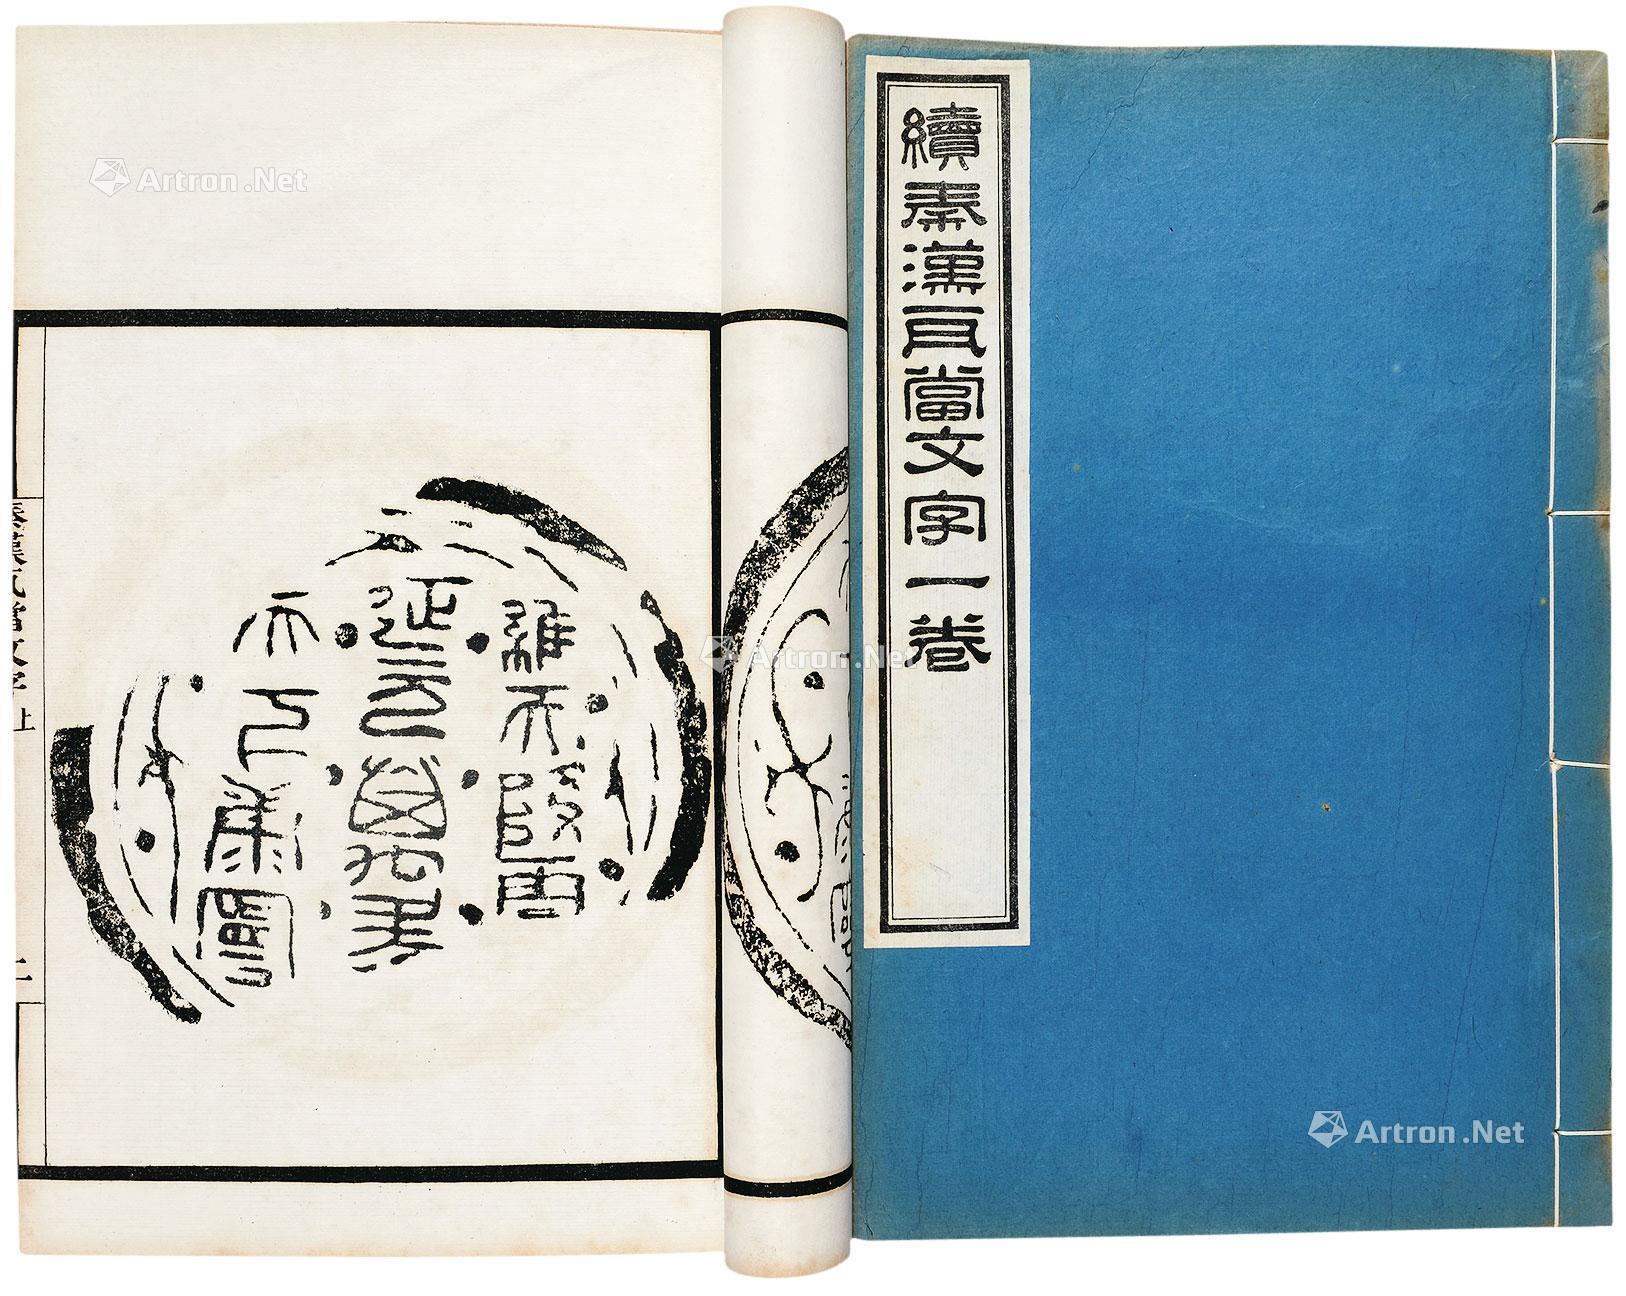 續秦漢瓦當文字一卷
維天降靈
延元萬年
天下康寧
秦漢瓦當文字 上
二
Artron.Net
Artron.Net
Artron.Net